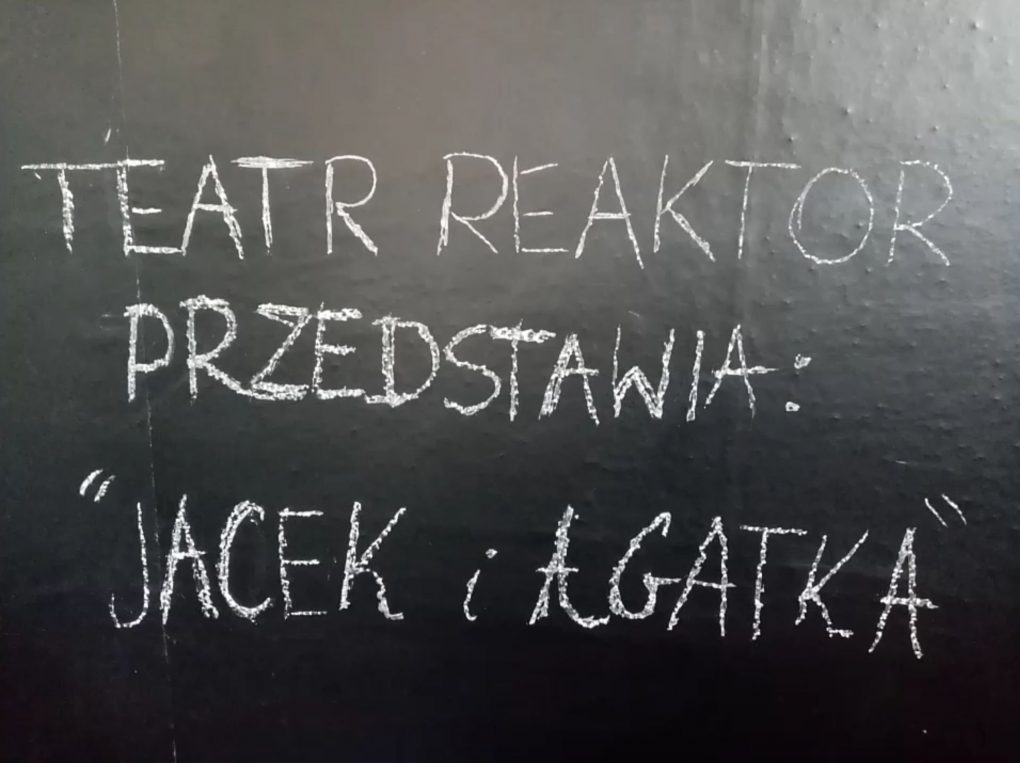 TEATR REAKTOR
PRZEDSTAWIA:
"JACEK i AGATKA"